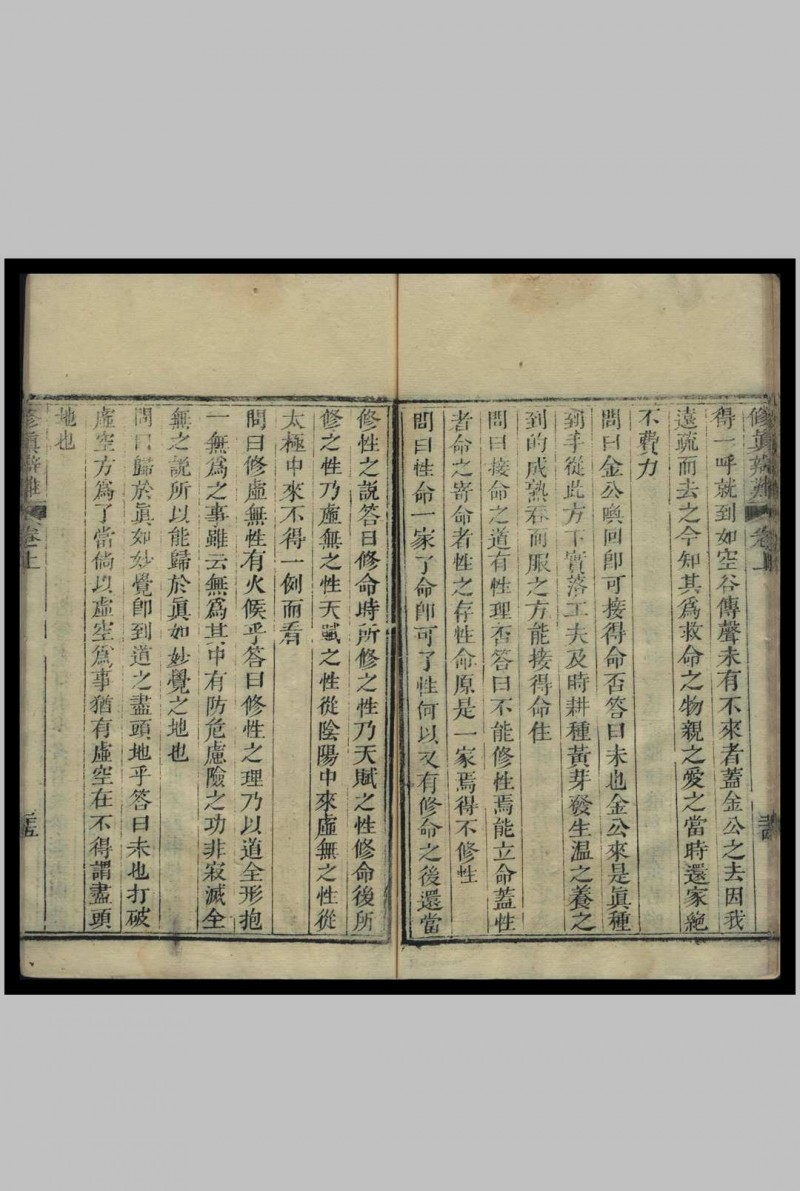 修眞辨難 卷上
得一呼就到如空谷傳聲未有不來者蓋金公之去因我
遠疏而去之今知其爲救命之物親之愛之當時還家絕
不費力
問曰金公喚回卽可接得命否答曰未也金公來是眞種
到手從此方下實落工夫及時耕種黃芽發生温之養之
到的成熟吞而服之方能接得命住
問曰接命之道有性理否答曰不能修性焉能立命蓋性
者命之寄命者性之存性命原是一家焉得不修性
問曰性命一家了命卽可了性何以又有修命之後還當
修性之說答曰修命時所修之性乃天賦之性修命後所
修之性乃虛無之性天賦之性從陰陽中來虛無之性從
太極中來不得一例而看
問曰修虛無性有火候乎答曰修性之理乃以道全形抱
一無爲之事雖云無爲其中有防危慮險之功非寂滅全
無之說所以能歸於眞如妙覺之地也
問曰歸於眞如妙覺卽到道之盡頭地乎答曰未也打破
虛空方爲了當倘以虛空爲事猶有虛空在不得謂盡頭
地也
修眞辨難 卷上